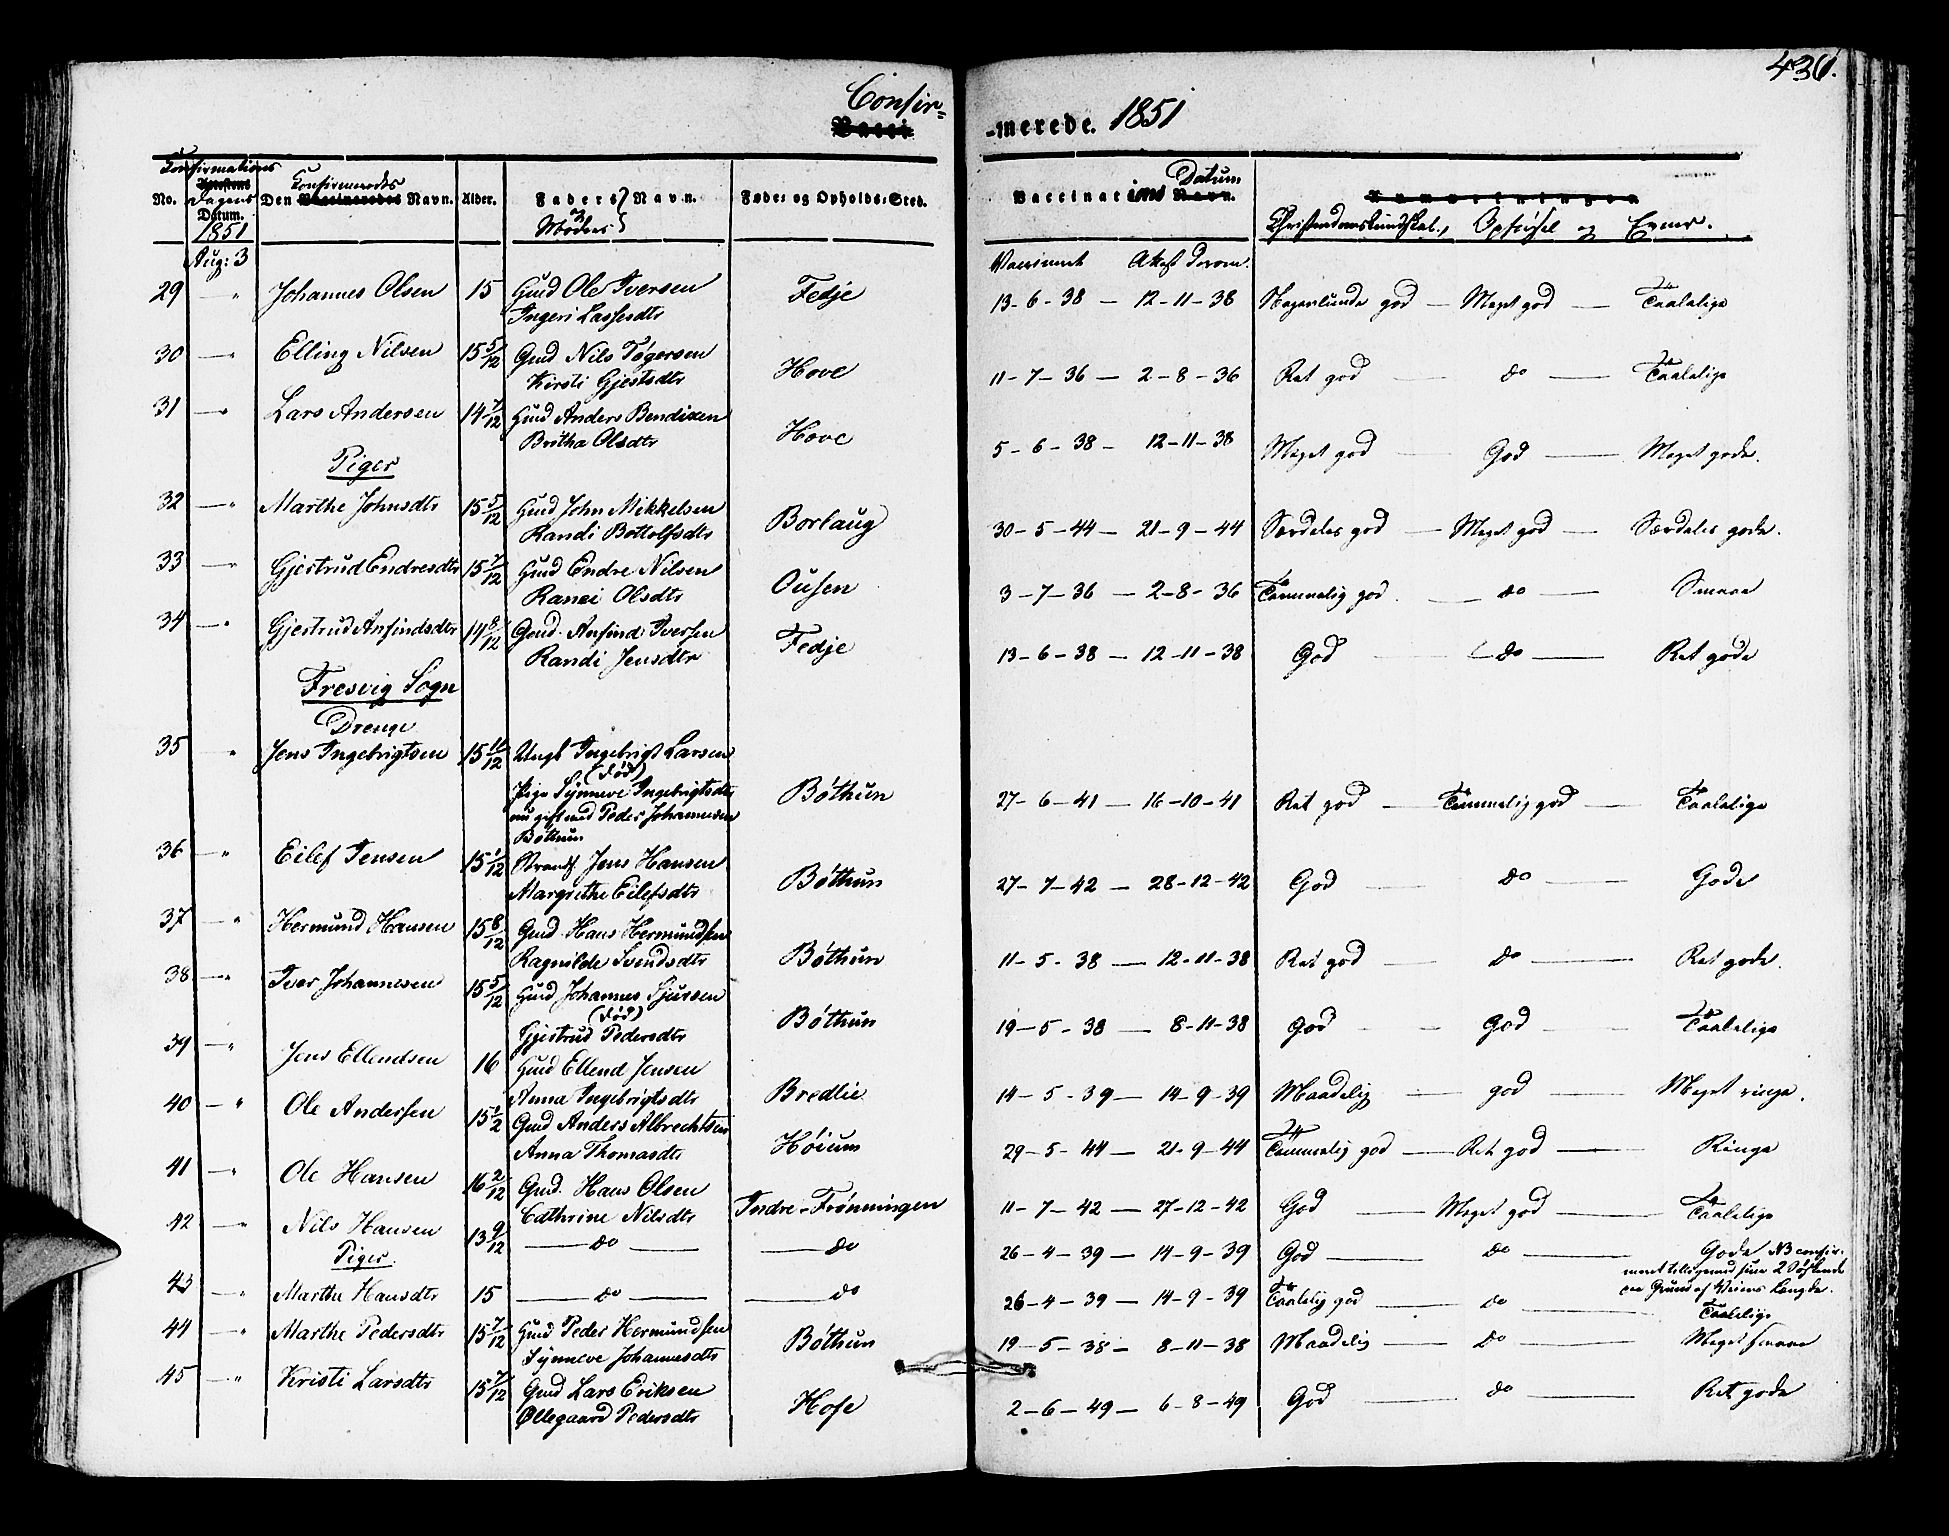 436.
Confir=
Vacci
-merede. 1851
No.
Confirmations
Dagens
Datum.
1851
Den Confirmeredes Navn.
Alder.
Faders og Moders Navn.
Føde- og Opholds-Sted.
Vaccinations Datum
Anmærkninger
Christendomskundskab, Opførsel og Evner.
Aug: 3
Vaccineret Attest derom.
29 — " Johannes Olsen 15 Gmd Ole Iversen Fedje 13-6-38 — 12-11-38 Nogenlunde god — Meget god — Taalelige
Ingeri Lassesdtr
30 — " Elling Nilsen 15 5/12 Gmd Nils Tøgersen Hove 11-7-36 — 2-8-36 Ret god — do — Taalelige
Kirsti Gjestsdtr
31 — " Lars Andersen 14 7/12 Gmd Anders Bendixen Hove 5-6-38 — 12-11-38 Meget god — God — Meget gode.
Britha Olsdtr
Piger
32 — " Marthe Johnsdtr 15 5/12 Gmd John Mikkelsen Borlaug 30-5-44 — 21-9-44 Særdeles god — Meget god — Særdeles gode.
Randi Bottolfsdtr
33 — " Gjertrud Endresdtr 15 7/12 Gmd Endre Nilsen Ousen 3-7-36 — 2-8-36 Temmelig god — do — Smaae
Ranei Olsdtr
34 — " Gjertrud Anfindsdtr 14 8/12 Gmd. Anfind Iversen Fedje 13-6-38 — 12-11-38 God — do — Ret gode
Randi Jensdtr
Fresvig Sogn
Drenge
35 " Jens Ingebrigtsen 15 11/12 Ungk Ingebrigt Larsen Bøthun 27-6-41 — 16-10-41 Ret god — Temmelig god — Taalelige
(død)
Pige Synneve Ingebrigtsdtr
nu gift med Peder Johannesen
Bøthun
36 — " Eilef Jensen 15 1/12 Strands. Jens Hansen Bøthun 27-7-42 — 28-12-42 God — do — Gode
Margrethe Eilefsdtr
37 — " Hermund Hansen 15 8/12 Gmd. Hans Hermundsen Bøthun 11-5-38 — 12-11-38 Ret god — do — Ret gode.
Ragnilde Svendsdtr
38 — " Iver Johannesen 15 5/12 Gmd Johannes Sjursen Bøthun 19-5-38 — 8-11-38 God — God — Taalelige
(død)
Gjertrud Pedersdtr
39 — " Jens Ellendsen 16 Gmd Ellend Jensen Bredlie 14-5-39 — 14-9-39 Maadelig — god — Meget ringe.
Anna Ingebrigtsdtr
40 — " Ole Andersen 15 1/2 Gmd Anders Albrechtsen Høium 29-5-44 — 21-9-44 Temmelig god — Ret god — Ringe
Anna Thomasdtr
41 " Ole Hansen 16 2/12 Gmd. Hans Olsen Indre-Frønningen 11-7-42 — 27-12-42 God — Meget god — Taalelige
Cathrine Nilsdtr
42 — " Nils Hansen 13 9/12 — do — — do 26-4-39 — 14-9-39 God — do — Gode NB confir-
meret tilligemed sine 2 Søskende
paa Grund af Veiens Længde.
Piger.
43 — " Marthe Hansdtr 15 — do — — do 26-4-39 — 14-9-39 Taalelig god — do — Taalelige
44 — " Marthe Pedersdtr 15 7/12 Gmd Peder Hermundsen Bøthun 19-5-38 — 8-11-38 Maadelig — do — Meget smaae
Synneve Johannesdtr
45 — " Kristi Larsdtr 15 7/12 Gmd Lars Eriksen Hofe 2-6-49 — 6-8-49 God — do — Ret gode
Øllegaard Pedersdtr